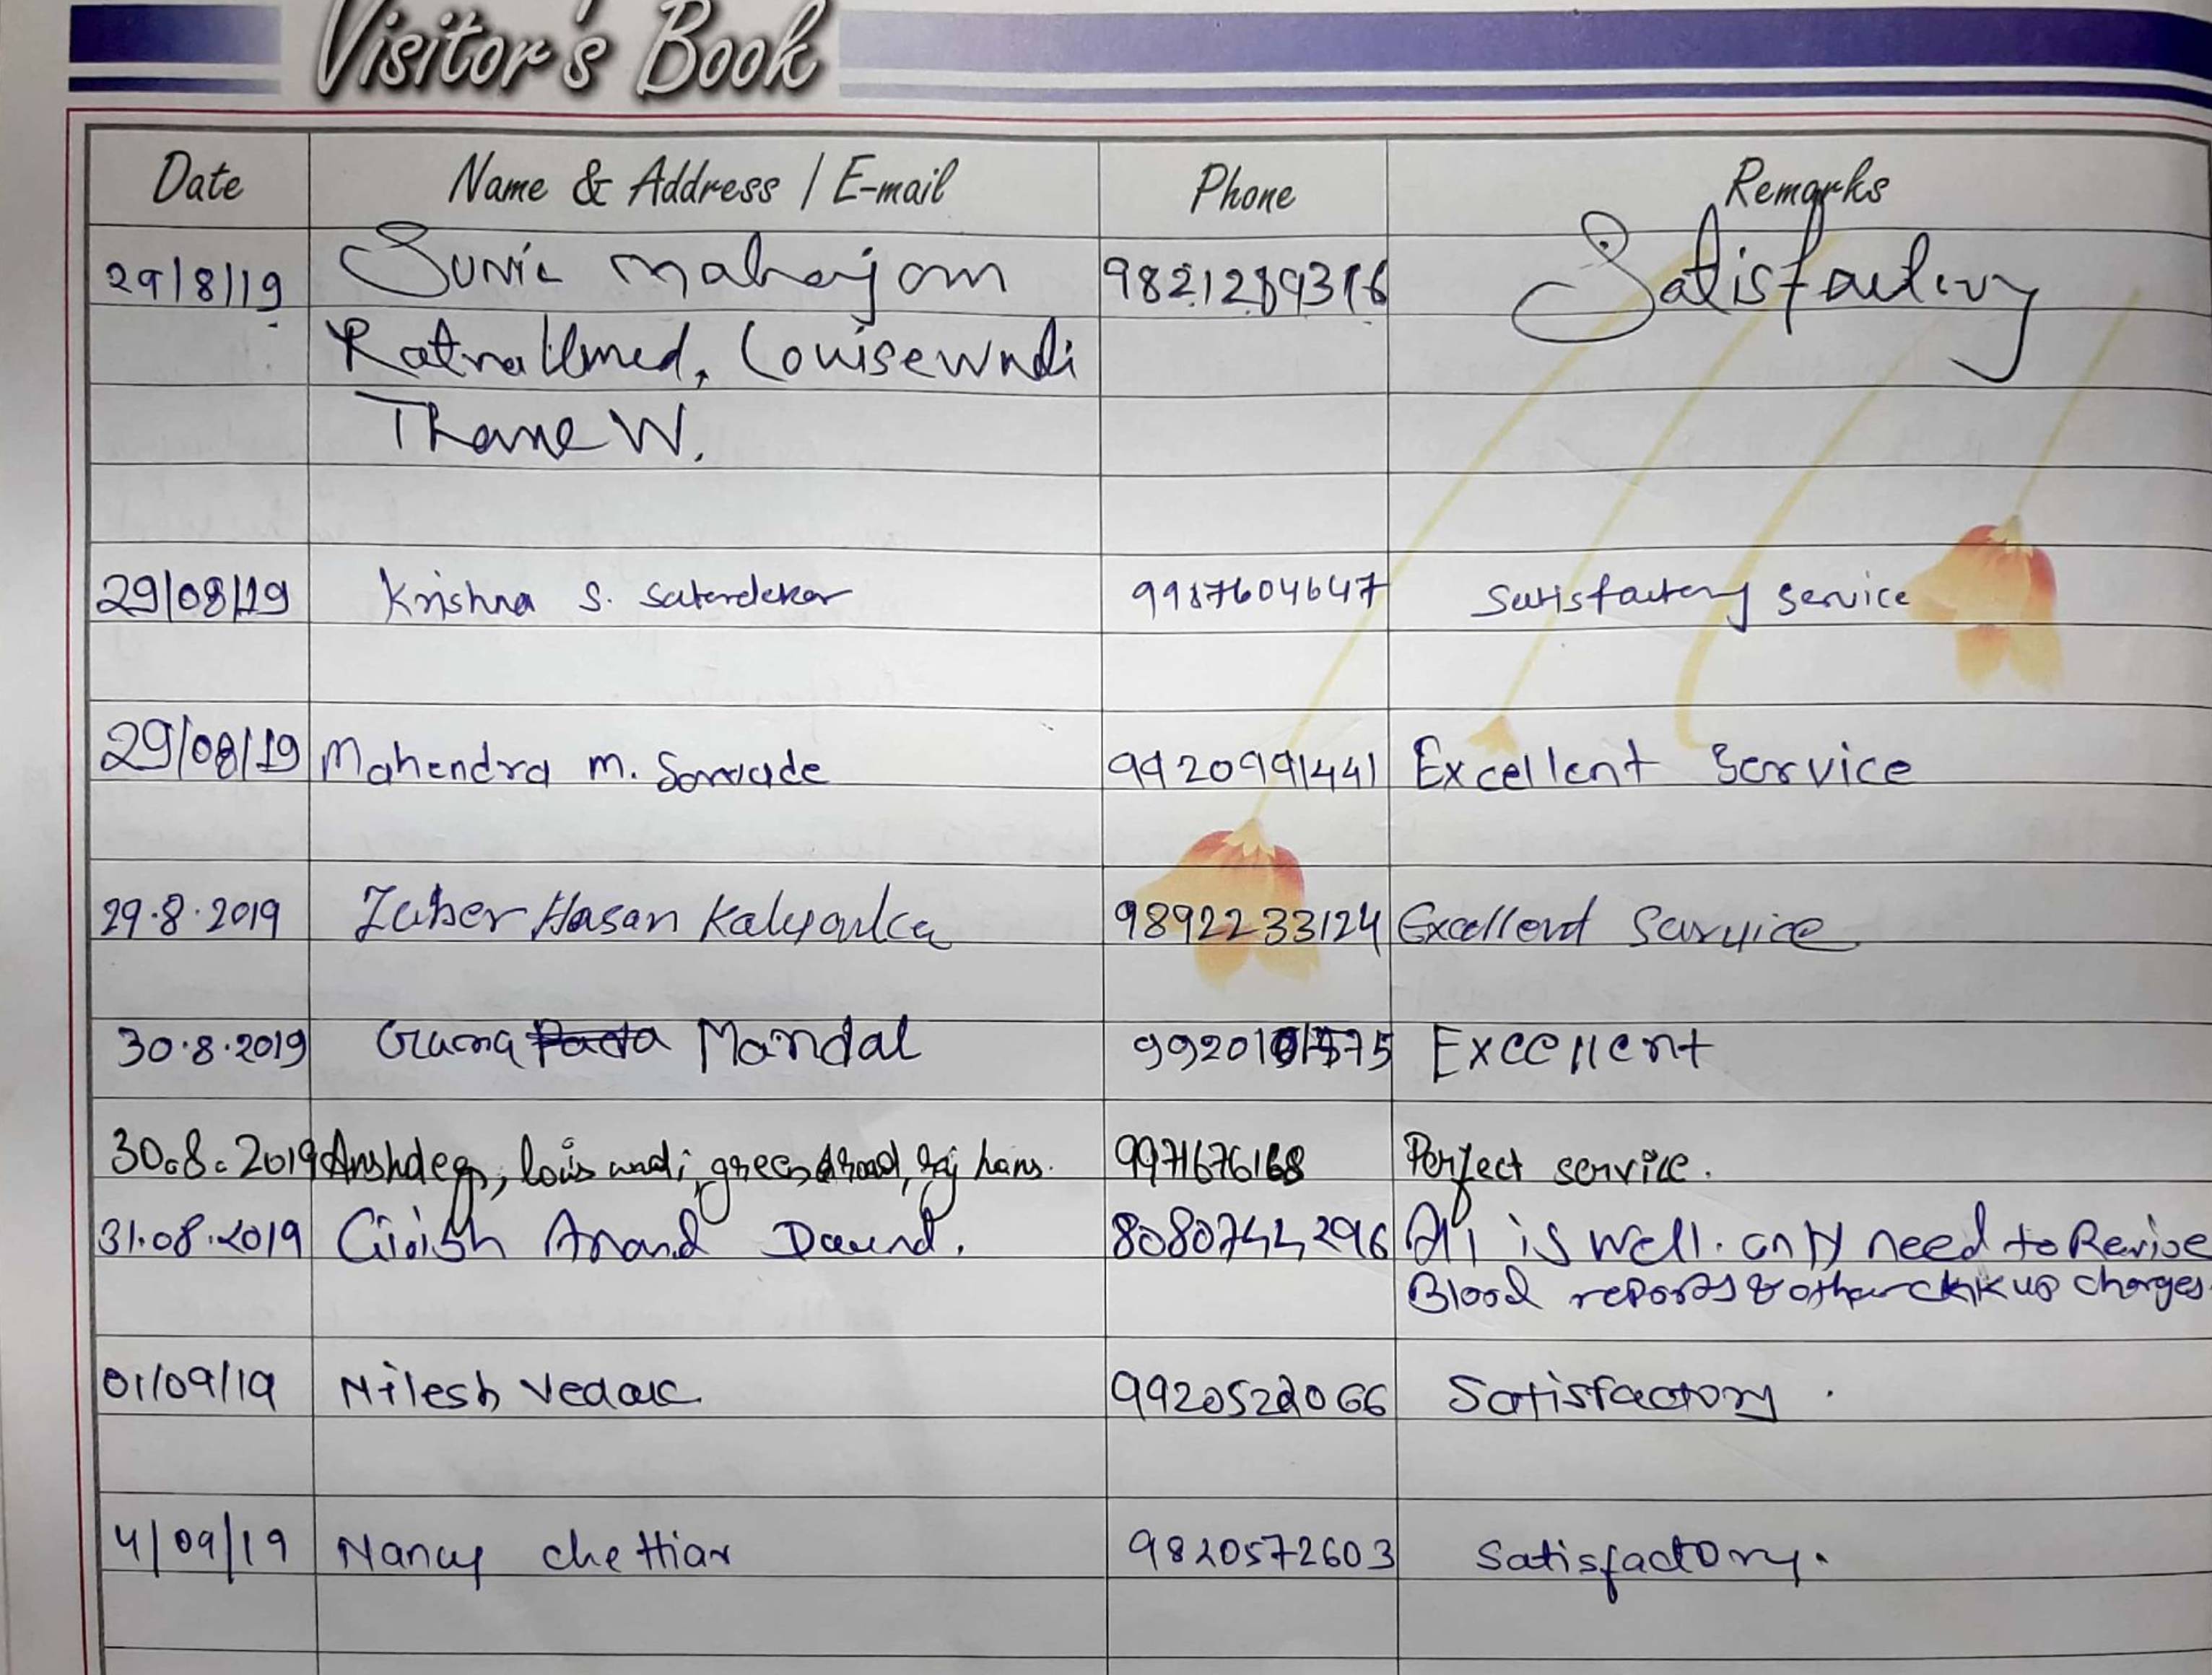 Visitor's Book
Date Name & Address / E-mail Phone Remarks
29/8/19 Sunil mahajan 9821289316 Satisfactory
Thane W.
29/08/19 Krishna S. 9987604647 Satisfactory Service
29/08/19 Mahendra M. 9920991441 Excellent Service
29.8.2019 Zuber Hasan 9892233124 Excellent Service
30.8.2019 Mandal Excellent
30.8.2019 Anshdeep, 9971676168 Perfect service.
31.08.2019 Girish Anand Daund. 8080744296 All is well. only need to Revise
Blood reports & other chk up charges.
01/09/19 Nilesh 9920522066 Satisfactory.
4/09/19 Nancy chettiar 9820572603 Satisfactory.